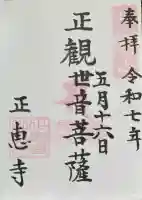 奉拝
令和七年
五月十六日
正觀世音菩薩
正恵寺